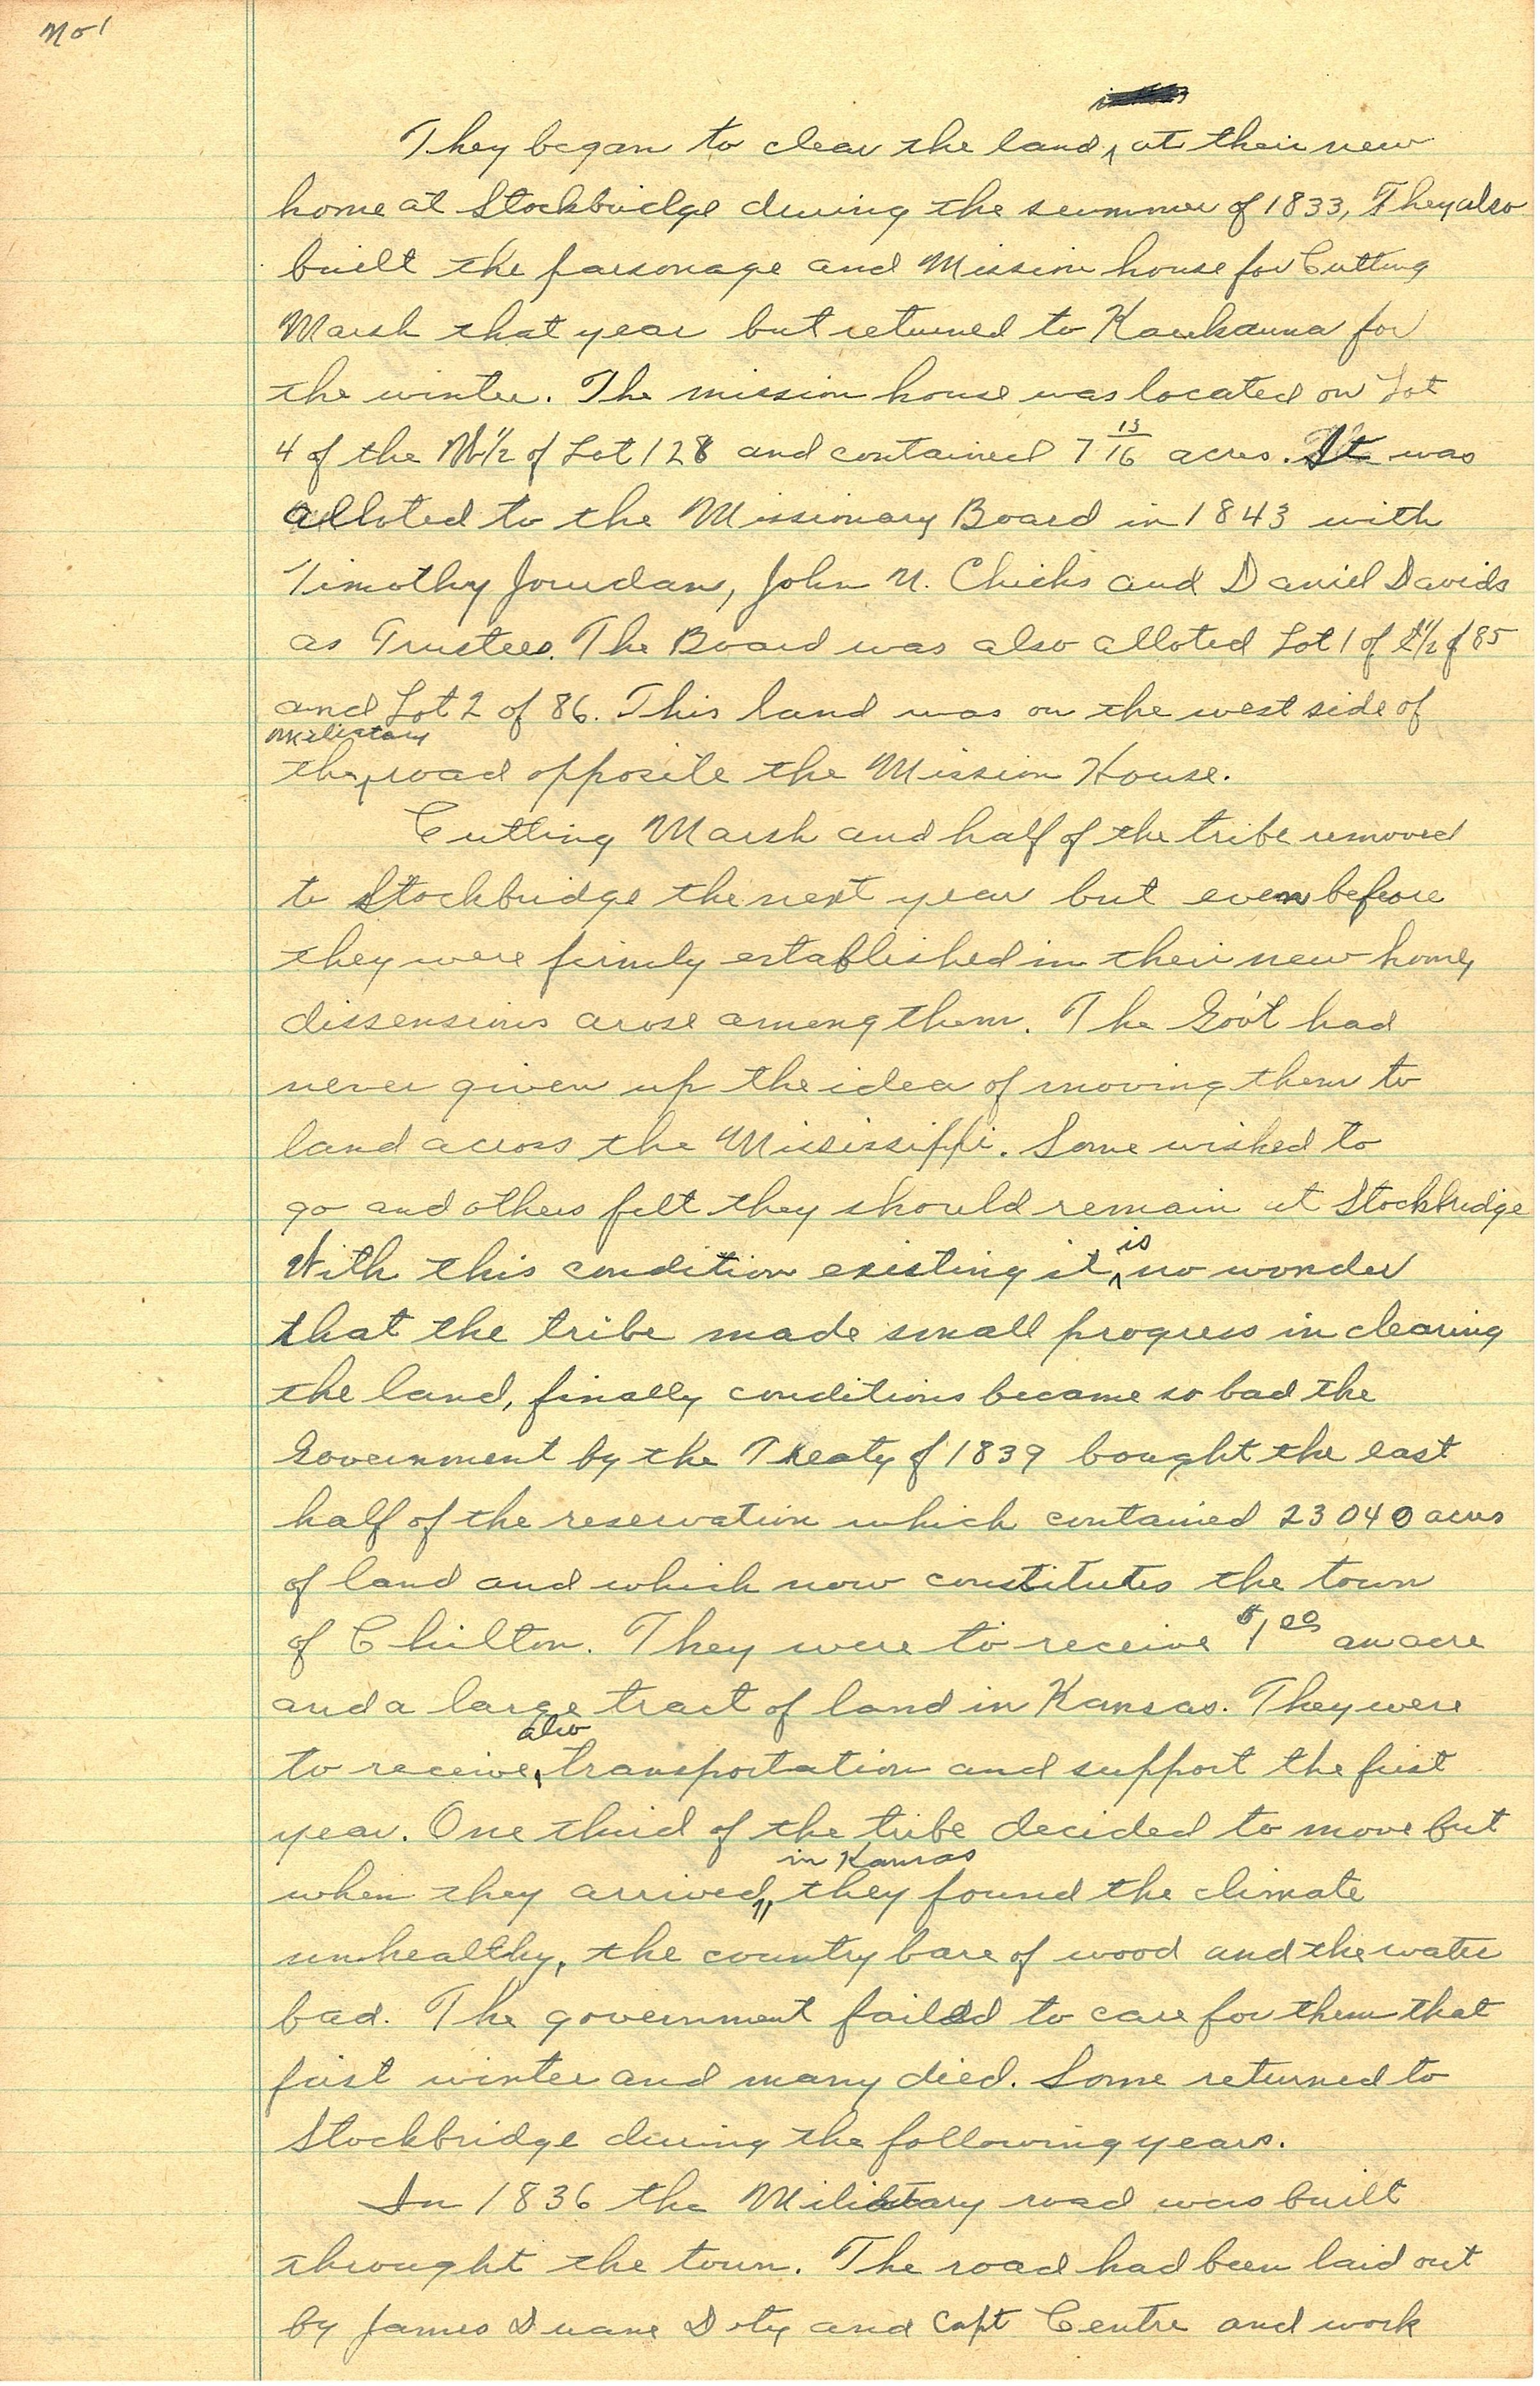 No 1
They began to clear the land at their new
home at Stockbridge during the summer of 1833, They also
built the parsonage and Mission house for Cutting
Marsh that year but returned to Kaukauna for
the winter. The mission house was located on Lot
4 of the 1/2 of Lot 128 and contained 7 13/16 acres. It was
alloted to the Missionary Board in 1843 with
Timothy Jourdan, John N. Chicks and Daniel Davids
as Trustees. The Board was also alloted Lot 1 of 1/2 of 85
and Lot 2 of 86. This land was on the west side of
the miliatary road opposite the Mission House.
Cutting Marsh and half of the tribe removed
to Stockbridge the next year but even before
they were firmly established in their new home,
dissensions arose among them. The Gov't had
never given up the idea of moving them to
land across the Mississippi. Some wished to
go and others felt they should remain at Stockbridge
With this condition existing it is no wonder
that the tribe made small progress in clearing
the land, finally conditions became so bad the
Government by the Treaty of 1839 bought the east
half of the reservation which contained 23040 acres
of land and which now constitutes the town
of Chilton. They were to receive $1.00 an acre
and a large tract of land in Kansas. They were
to receive also transportation and support the first
year. One third of the tribe decided to move but
when they arrived in Kansas, they found the climate
unhealthy, the country bare of wood and the water
bad. The government failed to care for them that
first winter and many died. Some returned to
Stockbridge during the following years.
In 1836 the Military road was built
throught the town. The road had been laid out
by James Duane Doty and Capt Centre and work